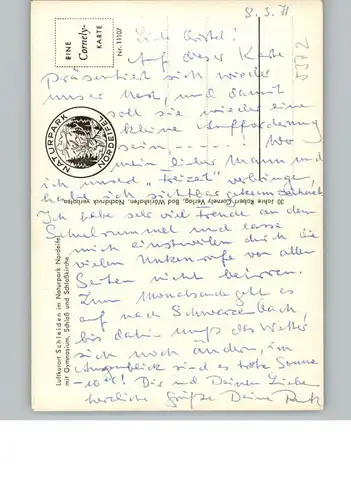 8. 3. 71
EINE
Cornely-
KARTE
Nr. 11107
Auf dieser Karte
präsentiert sich wieder
unser Nest, und damit
soll sie wieder eine
kleine Aufforderung
sein, Wo
mein lieber Mann und
ich unsere "Freizeit" verbringen,
habe ich sichtbar gekennzeichnet.
Ich habe sehr viel Freude an dem
Schulrummel und lasse
mich einstweilen durch die
vielen Unkenrufe von allen
Seiten nicht beirren.
Zum Monatsende geht es
auf nach Schwarzenbach,
bis dahin muß das Wetter
sich noch ändern, im
Augenblick sind es trotz Sonne
-10°! Dir und Deinen Lieben
herzliche Grüße Deine
NATURPARK
NORDEIFEL
30 Jahre Robert Cornely Verlag, Bad Wörishofen. Nachdruck verboten.
Luftkurort Schleiden im Naturpark Nordeifel
mit Gymnasium, Schloß und Schloßkirche